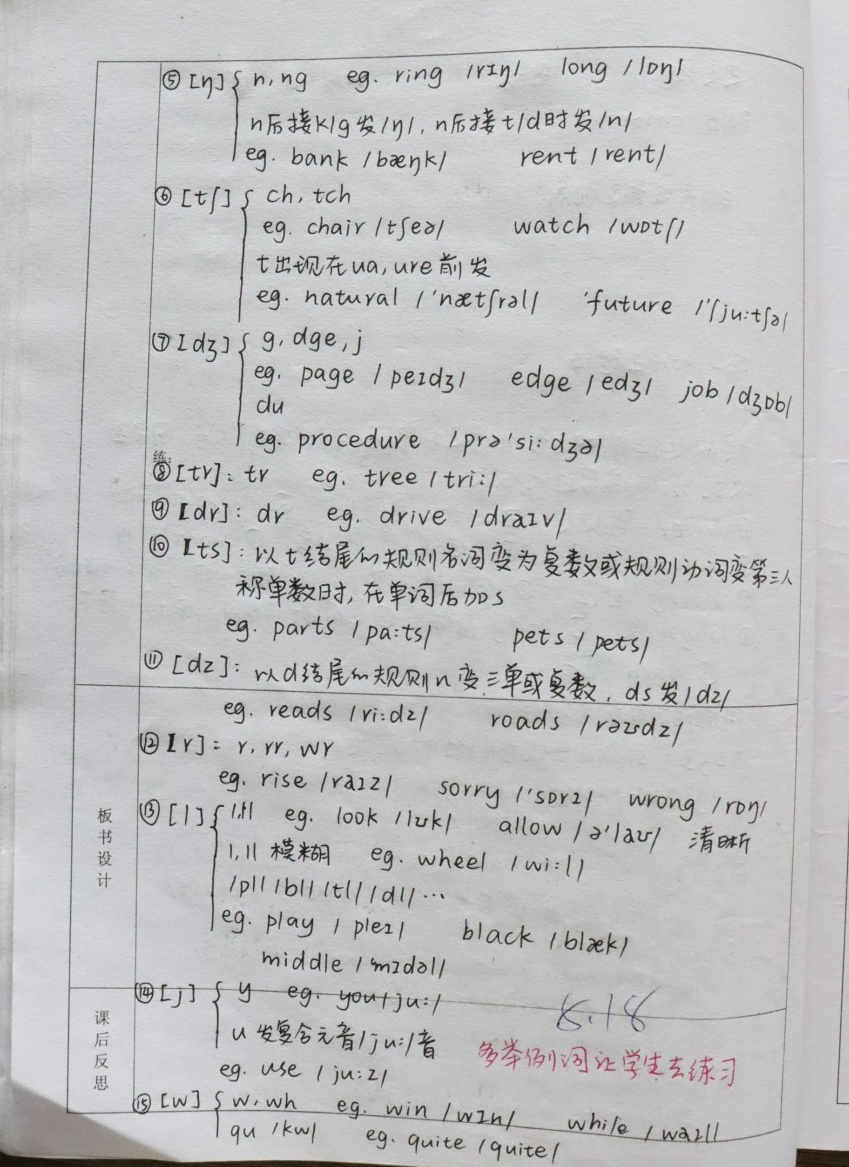 ⑤ [ŋ] { n, ng eg. ring /rɪŋ/ long /lɒŋ/
n后接k/g发/ŋ/, n后接t/d时发/n/
eg. bank /bæŋk/ rent /rent/
⑥ [tʃ] { ch, tch
eg. chair /tʃeə/ watch /wɒtʃ/
t出现在ua, ure前发
eg. natural /'nætʃrəl/ 'future /'ʃju:tʃə/
⑦ [dʒ] { g, dge, j
eg. page /peɪdʒ/ edge /edʒ/ job /dʒɒb/
du
eg. procedure /prə'si:dʒə/
练:
⑧ [tr]: tr eg. tree /tri:/
⑨ [dr]: dr eg. drive /draɪv/
⑩ [ts]: 以t结尾的规则名词变为复数或规则动词变第三人
称单数时, 在单词后加s
eg. parts /pa:ts/ pets /pets/
⑪ [dz]: 以d结尾的规则n变三单或复数, ds发/dz/
eg. reads /ri:dz/ roads /rəʊdz/
⑫ [r]: r, rr, wr
eg. rise /raɪz/ sorry /'sɒrɪ/ wrong /rɒŋ/
板书设计
⑬ [l] { l, ll eg. look /lʊk/ allow /ə'laʊ/ 清晰
l, ll 模糊 eg. wheel /wi:l/
/pl/ /bl/ /tl/ /dl/ …
eg. play /pleɪ/ black /blæk/
middle /'mɪdəl/
课后反思
⑭ [j] { y eg. you /ju:/
u 发复合元音/ju:/音
eg. use /ju:z/
8.18
多举例词让学生去练习
⑮ [w] { w, wh eg. win /wɪn/ while /waɪl/
qu /kw/ eg. quite /quite/